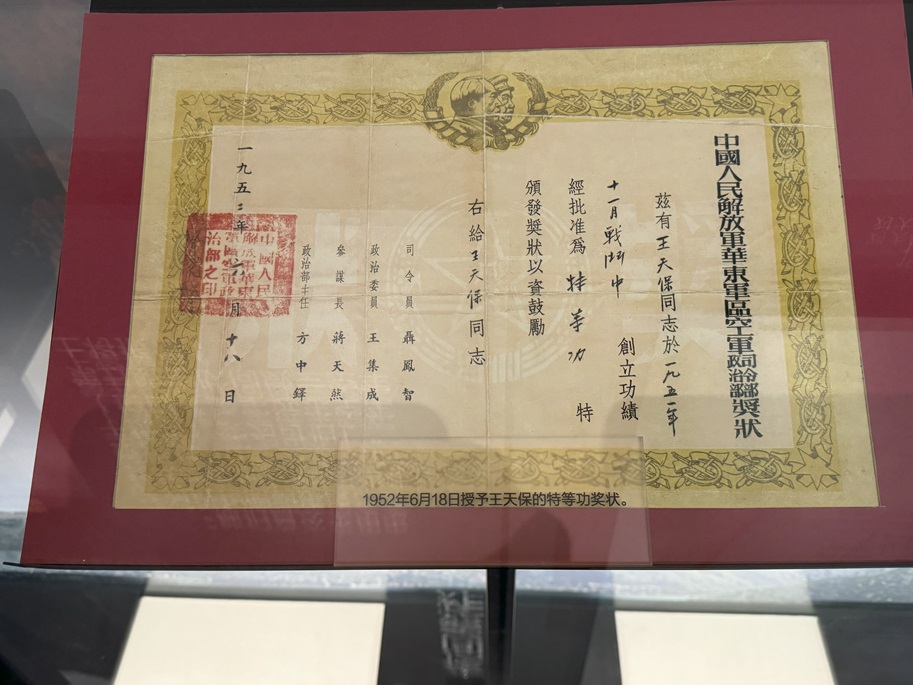 中國人民解放軍華東軍區空軍司令部政治部獎狀
玆有王天保同志於一九五一年
十一月戰鬥中 創立功績
經批准爲特等功 特
頒發獎狀以資鼓勵
右給王天保同志
司令員 聶鳳智
政治委員 王集成
參謀長 蔣天然
政治部主任 方中鐸
一九五二年六月十八日
1952年6月18日授予王天保的特等功奖状。